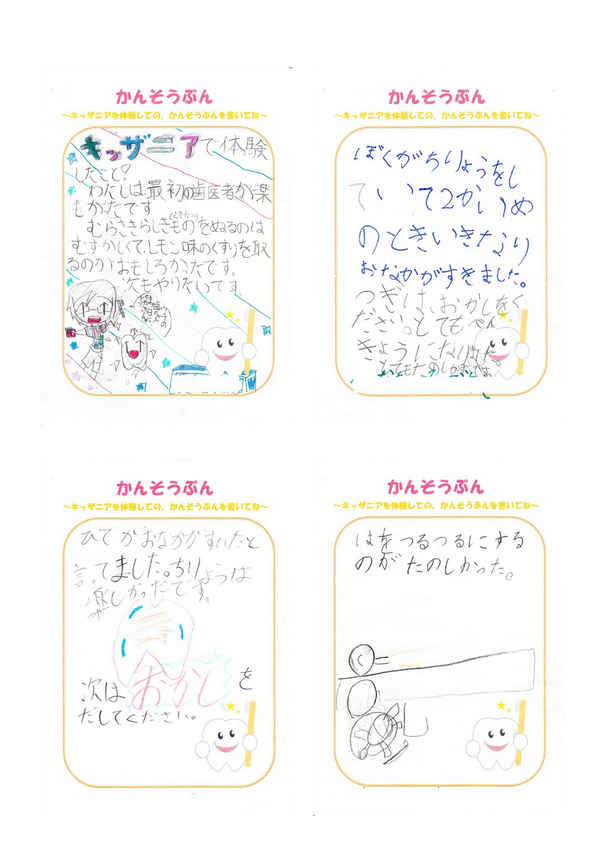 かんそうぶん
〜キッザニアを体験しての、かんそうぶんを書いてね〜
キッザニアで体験
したこと?
わたしは最初の歯医者が楽
しかたです
むらさきらしきものをぬるのは
むずかしくて、レモン味のくすりを取
るのがおもしろかたです。
次もやりたいです
かんそうぶん
〜キッザニアを体験しての、かんそうぶんを書いてね〜
ぼくがちりょうをし
ていて2かいめ
のときいきなり
おなかがすきました。
つぎは、おかしをく
ださい。とてもべん
きょうになりました。
とてもたのしかったです。
かんそうぶん
〜キッザニアを体験しての、かんそうぶんを書いてね〜
おなかがすいたと
言てました。ちりょうは
楽しかったです。
次はおかしを
だしてください。
かんそうぶん
〜キッザニアを体験しての、かんそうぶんを書いてね〜
はをつるつるにする
のがたのしかった。